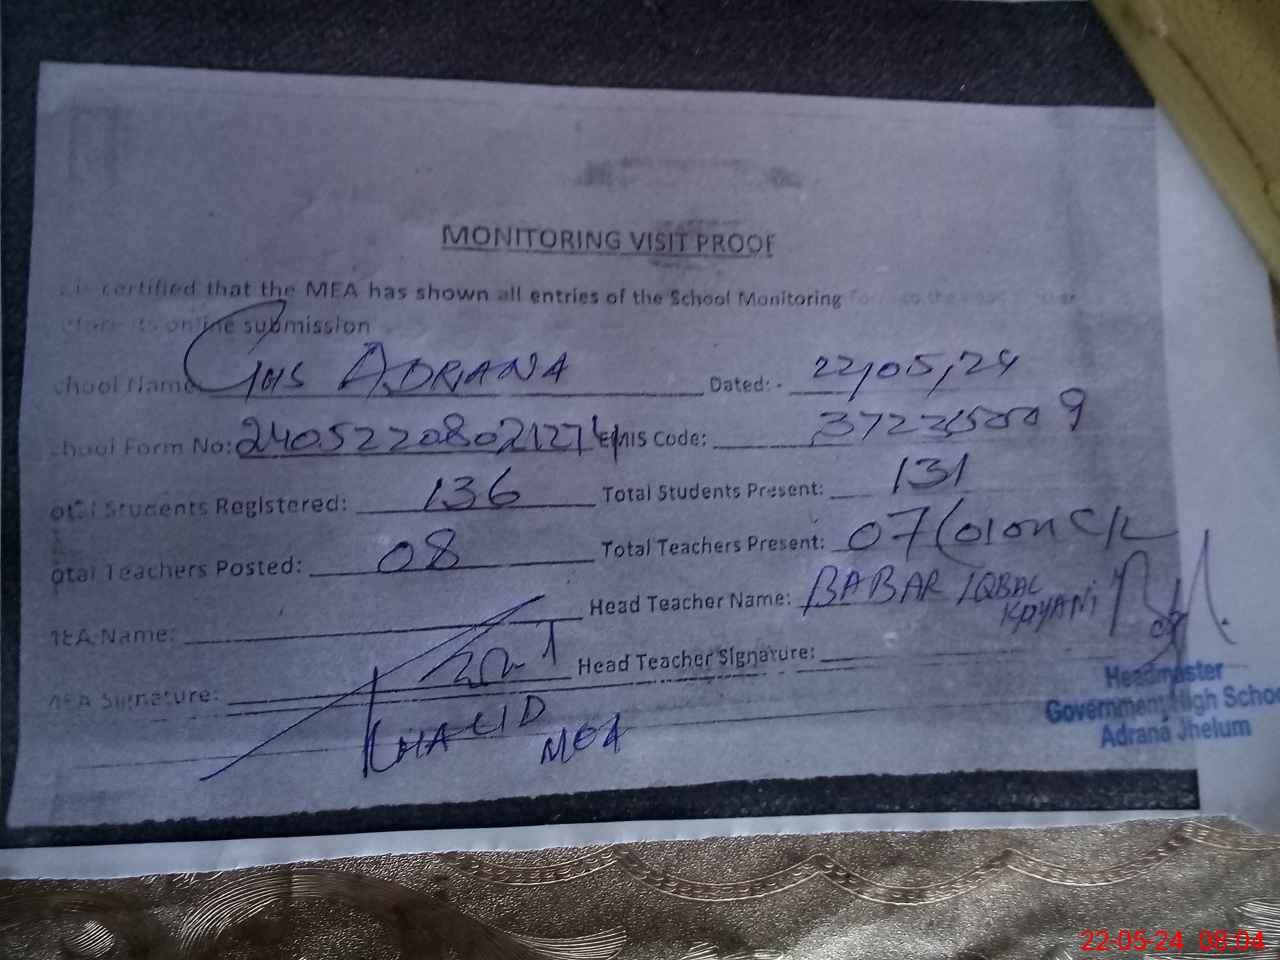 MONITORING VISIT PROOF
certified that the MEA has shown all entries of the School Monitoring
online submission
chool Name GHS ADRANA Dated:- 22/05/24
chool Form No: EMIS Code:
otal Students Registered: 136 Total Students Present: 131
otal Teachers Posted: 08 Total Teachers Present: 07 (01 on C/L
MEA Name: Head Teacher Name: BABAR IQBAL
KAYANI
MEA Signature: Head Teacher Signature:
KHALID
MEA
Headmaster
Government High Schoo
Adrana Jhelum
22-05-24 08:04